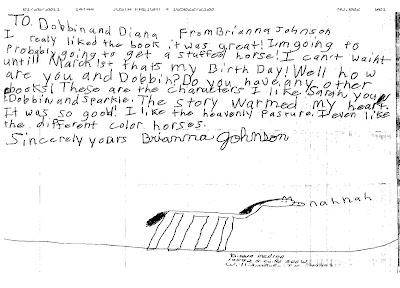 TO. Dobbin and Diana   From Brianna Johnson
I realy liked the book it was great! I,m going to
Probably going to get a stuffed horse! I can't waiht
untill March 1st thats my Birth Day! Well how
are you and Dobbin? Do you have any other
books! These are the characters I like Sarah, you,
Dobbin and Sparkle. The story warmed my heart.
It was so good! I like the heavenly Pasture. I even like
the different color horses.
Sincerely yours Brianna Johnson
nahnah